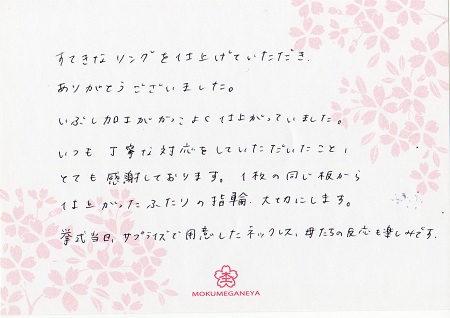 すてきなリングを仕上げていただき、
ありがとうございました。
いぶし加工がかっこよく仕上がっていました。
いつも丁寧な対応をしていただいたこと、
とても感謝しております。1枚の同じ板から
仕上がったふたりの指輪、大切にします。
挙式当日、サプライズで用意したネックレス、母たちの反応も楽しみです。
MOKUMEGANEYA